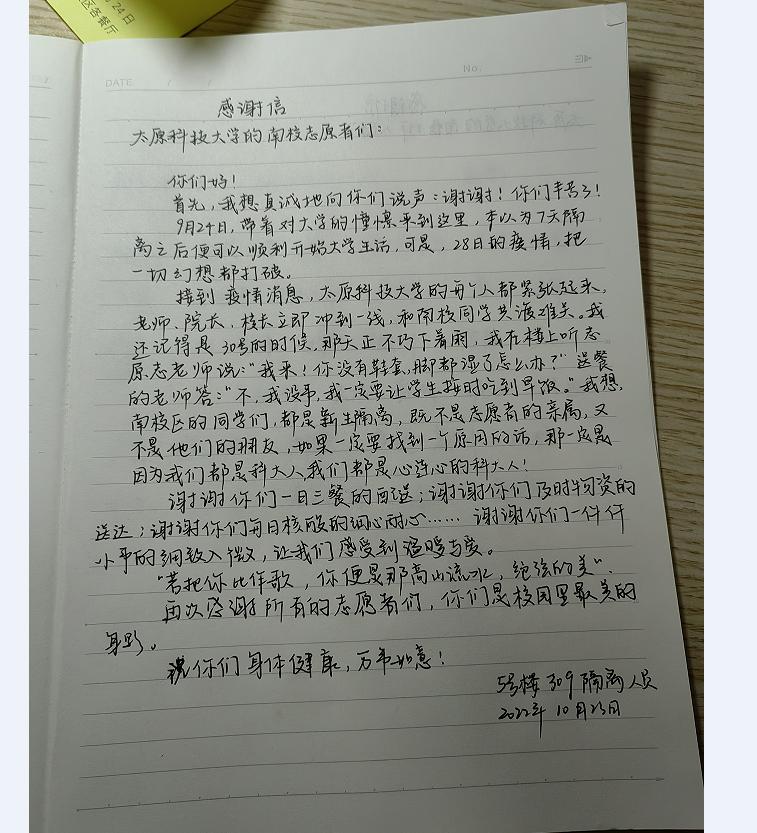 24日
区各餐厅
DATE / /
No.
感谢信
太原科技大学的南校志愿者们：
你们好！
首先，我想真诚地向你们说声：谢谢！你们辛苦了！
9月24日，带着对大学的憧憬来到这里，本以为7天隔
离之后便可以顺利开始大学生活，可是，28日的疫情，把
一切幻想都打破。
接到疫情消息，太原科技大学的每个人都紧张起来，
老师、院长、校长立即冲到一线，和南校同学共渡难关。我
还记得是30号的时候，那天正不巧下着雨，我在楼上听志
愿老师说：“我来！你没有鞋套，脚都湿了怎么办？”送餐
的老师答：“不，我没事，我一定要让学生按时吃到早饭。”我想，
南校区的同学们，都是新生隔离，既不是志愿者的亲属，又
不是他们的朋友，如果一定要找到一个原因的话，那一定是
因为我们都是科大人，我们都是心连心的科大人！
谢谢你们一日三餐的配送；谢谢你们及时物资的
送达；谢谢你们每日核酸的细心耐心…… 谢谢你们一件件
小事的细致入微，让我们感受到温暖与爱。
“若把你比作歌，你便是那高山流水，绝弦的美”.
再次感谢所有的志愿者们，你们是校园里最美的
身影。
祝你们身体健康，万事如意！
5号楼309隔离人员
2022年10月23日